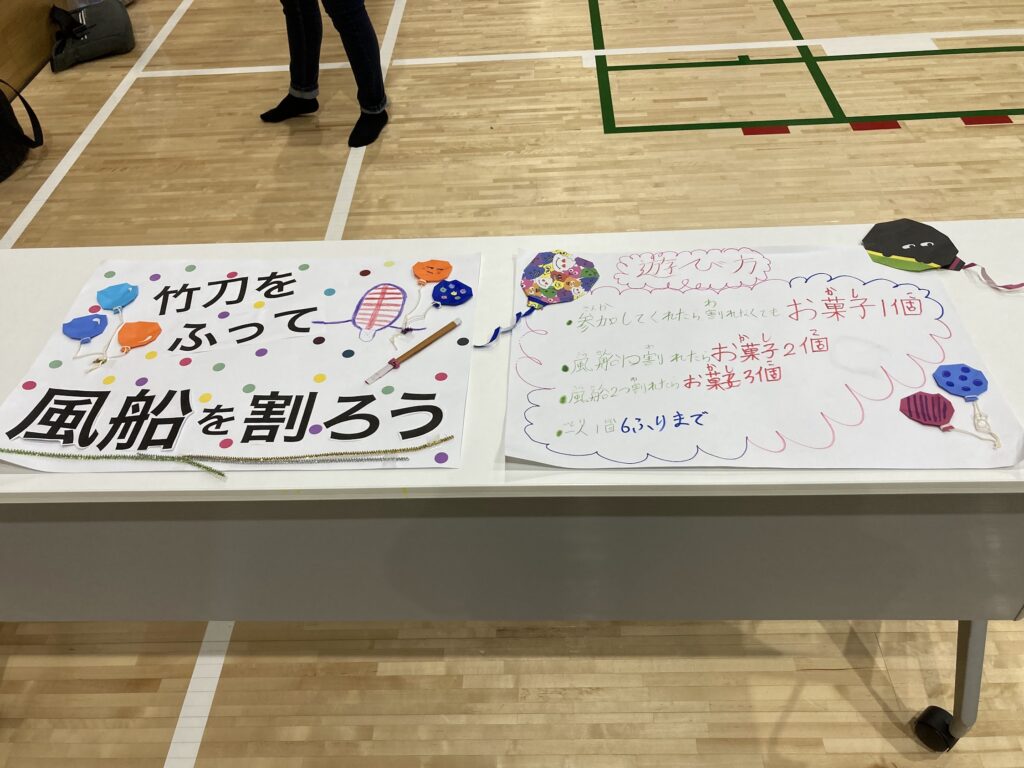 竹刀を
ふって
風船を割ろう
遊び方
・参加してくれたら割れなくてもお菓子1個
・風船1つ割れたらお菓子2個
・風船2つ割れたらお菓子3個
・一人1回6ふりまで